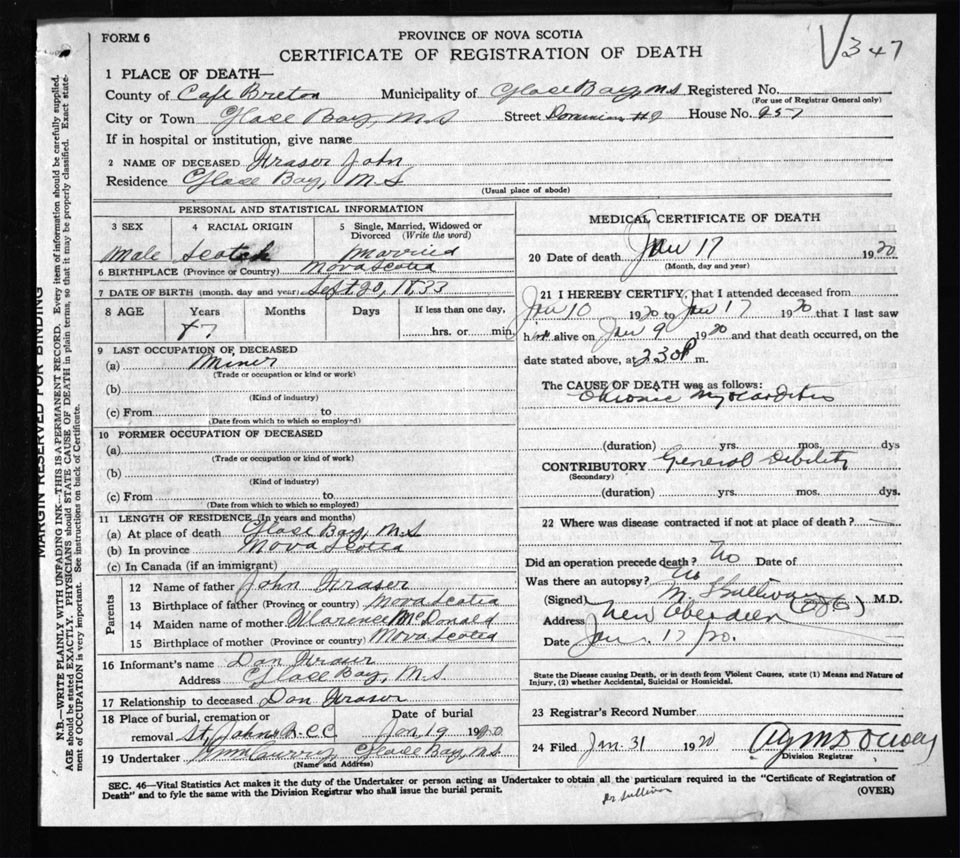 FORM 6
PROVINCE OF NOVA SCOTIA
CERTIFICATE OF REGISTRATION OF DEATH
347
1 PLACE OF DEATH—
County of Cape Breton Municipality of Glace Bay, N.S Registered No.
(For use of Registrar General only)
City or Town Glace Bay, N.S Street Dominion #9 House No. 957
If in hospital or institution, give name
2 NAME OF DECEASED Fraser John
Residence Glace Bay, N.S
(Usual place of abode)
PERSONAL AND STATISTICAL INFORMATION
3 SEX 4 RACIAL ORIGIN 5 Single, Married, Widowed or Divorced (Write the word)
Male Scotch Married
6 BIRTHPLACE (Province or Country) Nova Scotia
7 DATE OF BIRTH (month, day and year) Sept 20, 1833
8 AGE Years Months Days If less than one day,
87 hrs. or min.
9 LAST OCCUPATION OF DECEASED
(a) Miner
(Trade or occupation or kind or work)
(b)
(Kind of industry)
(c) From to
(Date from which to which so employed)
10 FORMER OCCUPATION OF DECEASED
(a)
(Trade or occupation or kind of work)
(b)
(Kind of industry)
(c) From to
(Date from which to which so employed)
11 LENGTH OF RESIDENCE (In years and months)
(a) At place of death Glace Bay, N.S
(b) In province Nova Scotia
(c) In Canada (if an immigrant)
Parents
12 Name of father John Fraser
13 Birthplace of father (Province or country) Nova Scotia
14 Maiden name of mother McDonald
15 Birthplace of mother (Province or country) Nova Scotia
16 Informant's name Dan Fraser
Address Glace Bay, N.S.
17 Relationship to deceased Dan Fraser
18 Place of burial, cremation or Date of burial
removal St. Johns R.C.C. Jan 19 1920
19 Undertaker Curry, Glace Bay, N.S.
(Name and Address)
MEDICAL CERTIFICATE OF DEATH
20 Date of death Jan 17 1920
(Month, day and year)
21 I HEREBY CERTIFY, that I attended deceased from
Jan 10 1920 to Jan 17 1920 that I last saw
him alive on Jan 9 1920 and that death occurred, on the
date stated above, at 2 30 P m.
The CAUSE OF DEATH was as follows:
Chronic Myocarditis
(duration) yrs. mos. dys
CONTRIBUTORY General Debility
(Secondary)
(duration) yrs. mos. dys.
22 Where was disease contracted if not at place of death?
Did an operation precede death? No Date of
Was there an autopsy? No
(Signed) M Sullivan M.D.
Address New Aberdeen
Date Jan. 17/20.
State the Disease causing Death, or in death from Violent Causes, state (1) Means and Nature of
Injury, (2) whether Accidental, Suicidal or Homicidal.
23 Registrar's Record Number
24 Filed Jan. 31 1920
Division Registrar
SEC. 46—Vital Statistics Act makes it the duty of the Undertaker or person acting as Undertaker to obtain all the particulars required in the "Certificate of Registration of
Death" and to fyle the same with the Division Registrar who shall issue the burial permit.
(OVER)
Dr Sullivan
MARGIN RESERVED FOR BINDING
N.B.—WRITE PLAINLY WITH UNFADING INK—THIS IS A PERMANENT RECORD. Every item of information should be carefully supplied.
AGE should be stated EXACTLY. PHYSICIANS should STATE CAUSE OF DEATH in plain terms, so that it may be properly classified. Exact state-
ment of OCCUPATION is very important. See instructions on back of Certificate.